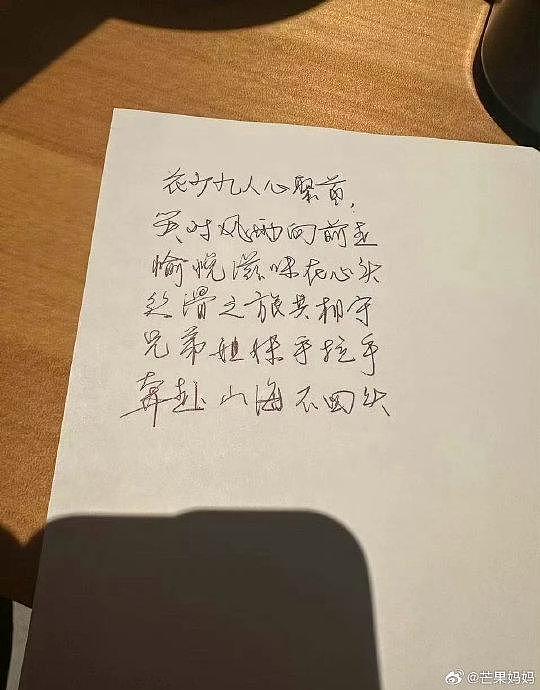 花少九人心聚首，
笑对风雨向前走
愉悦滋味在心头
丝滑之旅共相守
兄弟姐妹手拉手
奔赴山海不回头
@芒果妈妈